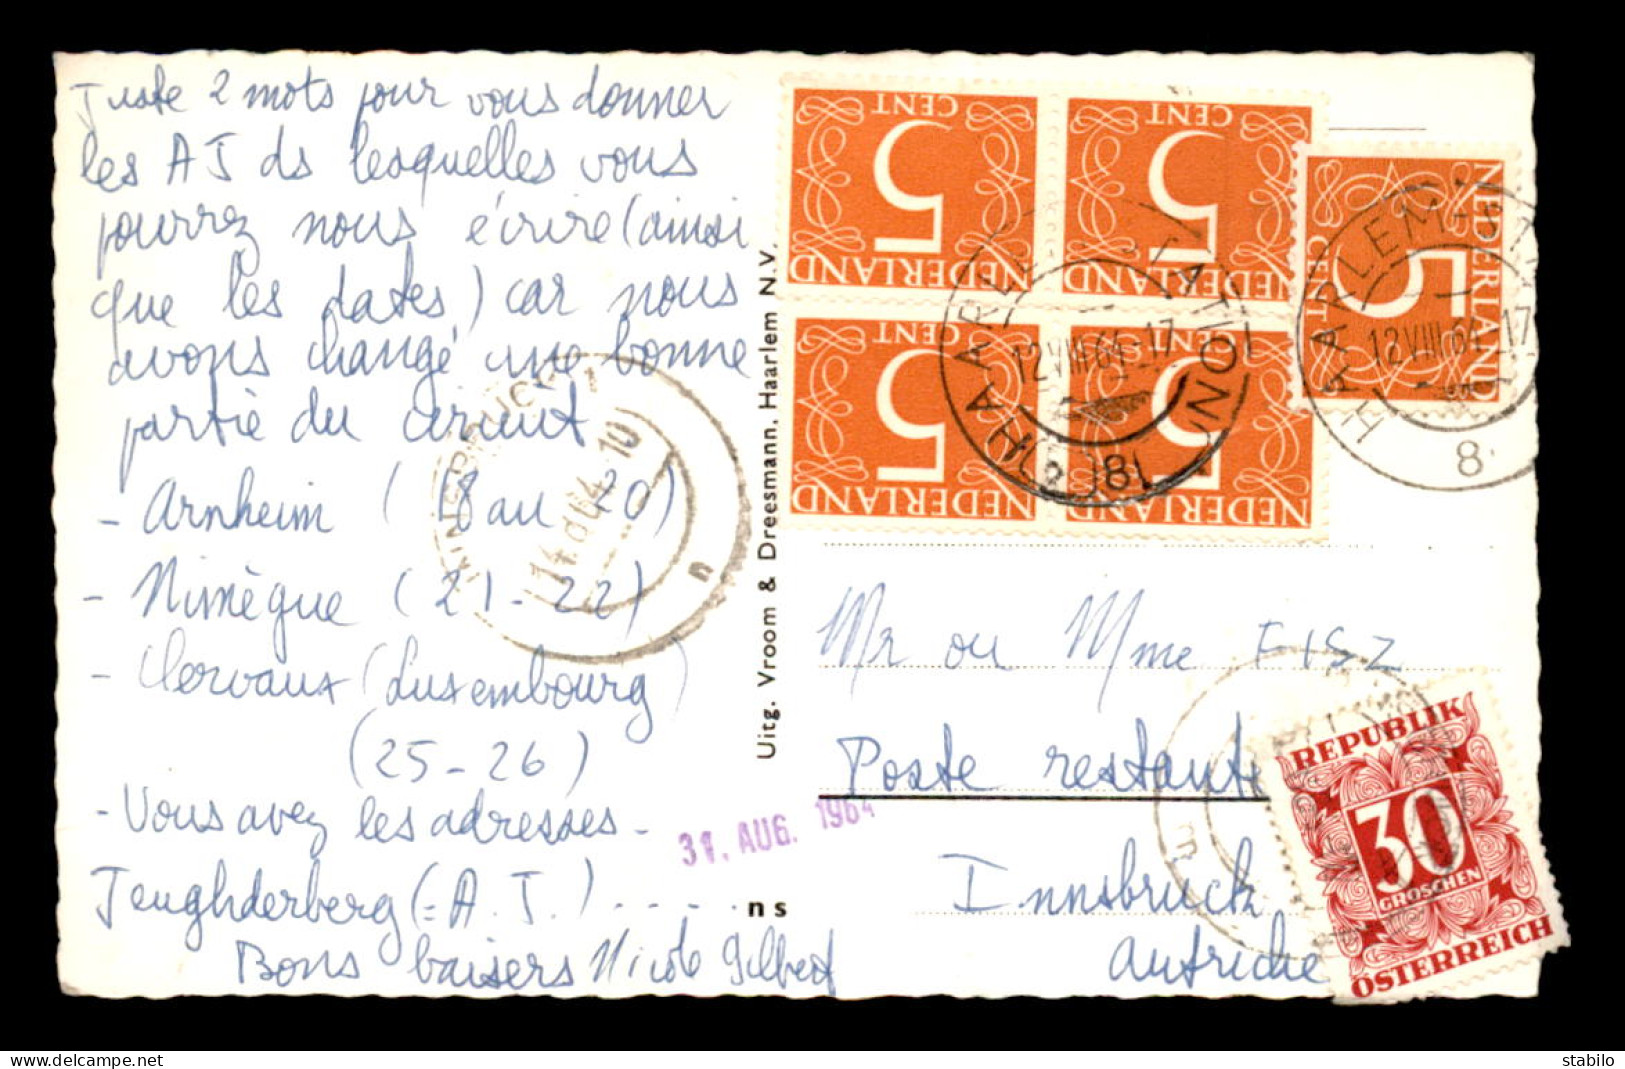 Juste 2 mots pour vous donner
les AJ ds lesquelles vous
pourrez nous écrire (ainsi
que les dates) car nous
avons changé une bonne
partie du circuit
- Arnheim (18 au 20)
- Nimègue (21-22)
- Clervaux (Luxembourg)
(25-26)
- Vous avez les adresses -
Jeughderberg (= A.J.) - - - -
Bons baisers Nicole Gilbert
Uitg. Vroom & Dreesmann, Haarlem N.V.
ns
31. AUG. 1964
NEDERLAND
5
CENT
NEDERLAND
5
CENT
NEDERLAND
5
CENT
NEDERLAND
5
CENT
NEDERLAND
5
CENT
HAARLEM-STATION
12 VIII 64-17
8
HAARLEM-STATION
12 VIII 64-17
8
INNSBRUCK 1
n
Mr ou Mme FISZ
Poste restante
Innsbruck
Autriche
REPUBLIK
30
GROSCHEN
ÖSTERREICH
stabilo